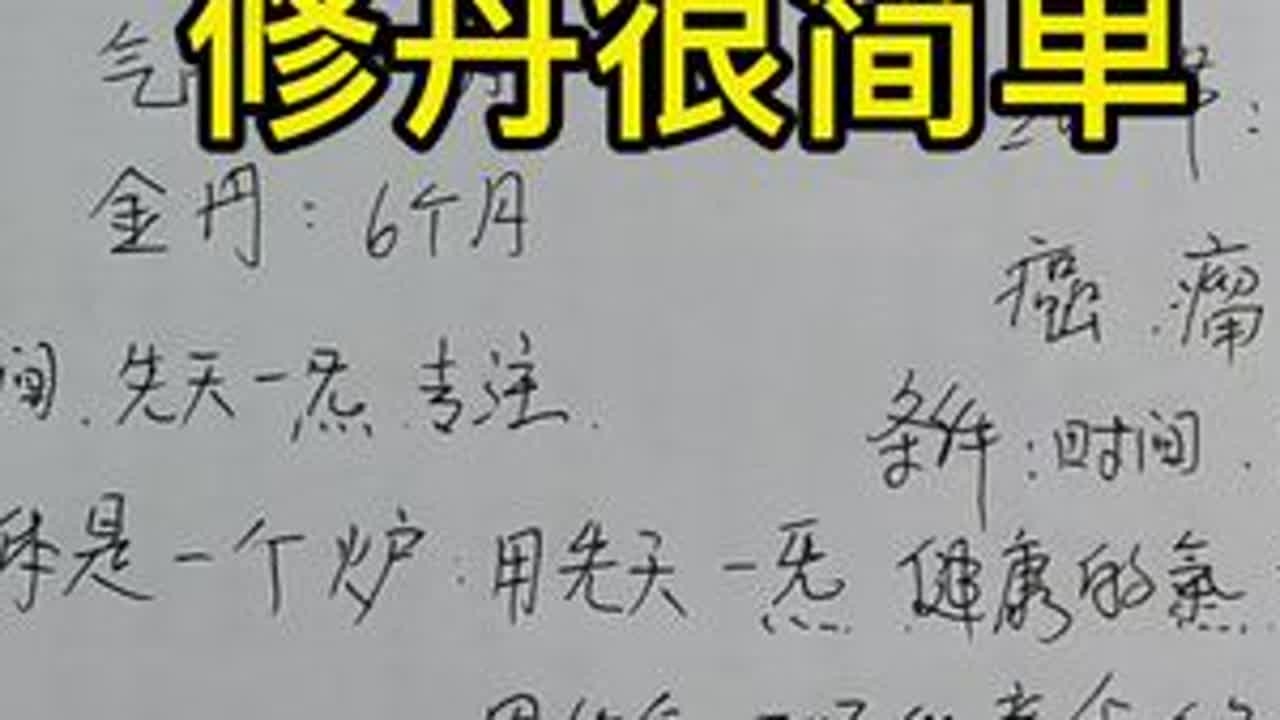 修丹很简单
气
金丹：6个月
癌 瘤
间．先天一炁 专注．
条件：时间．
体是一个炉：用先天一炁 健康的氣